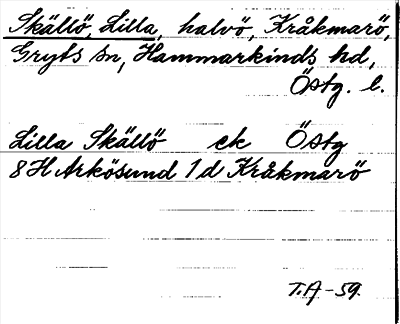 Skällö, Lilla, halvö, Kråkmarö,
Gryts sn, Hammarkinds hd,
Östg. l.
Lilla Skällö ek Östg
8H Arkösund 1d Kråkmarö
T.A-59.